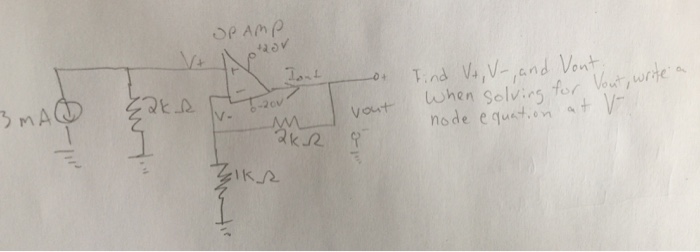 OP AMP
+20V
V+
+
Iout
o+
Find V+, V-, and Vout.
When solving for Vout, write a
node equation at V-
3 mA
2k Ω
-
-20V
V-
Vout
2k Ω
-
1k Ω